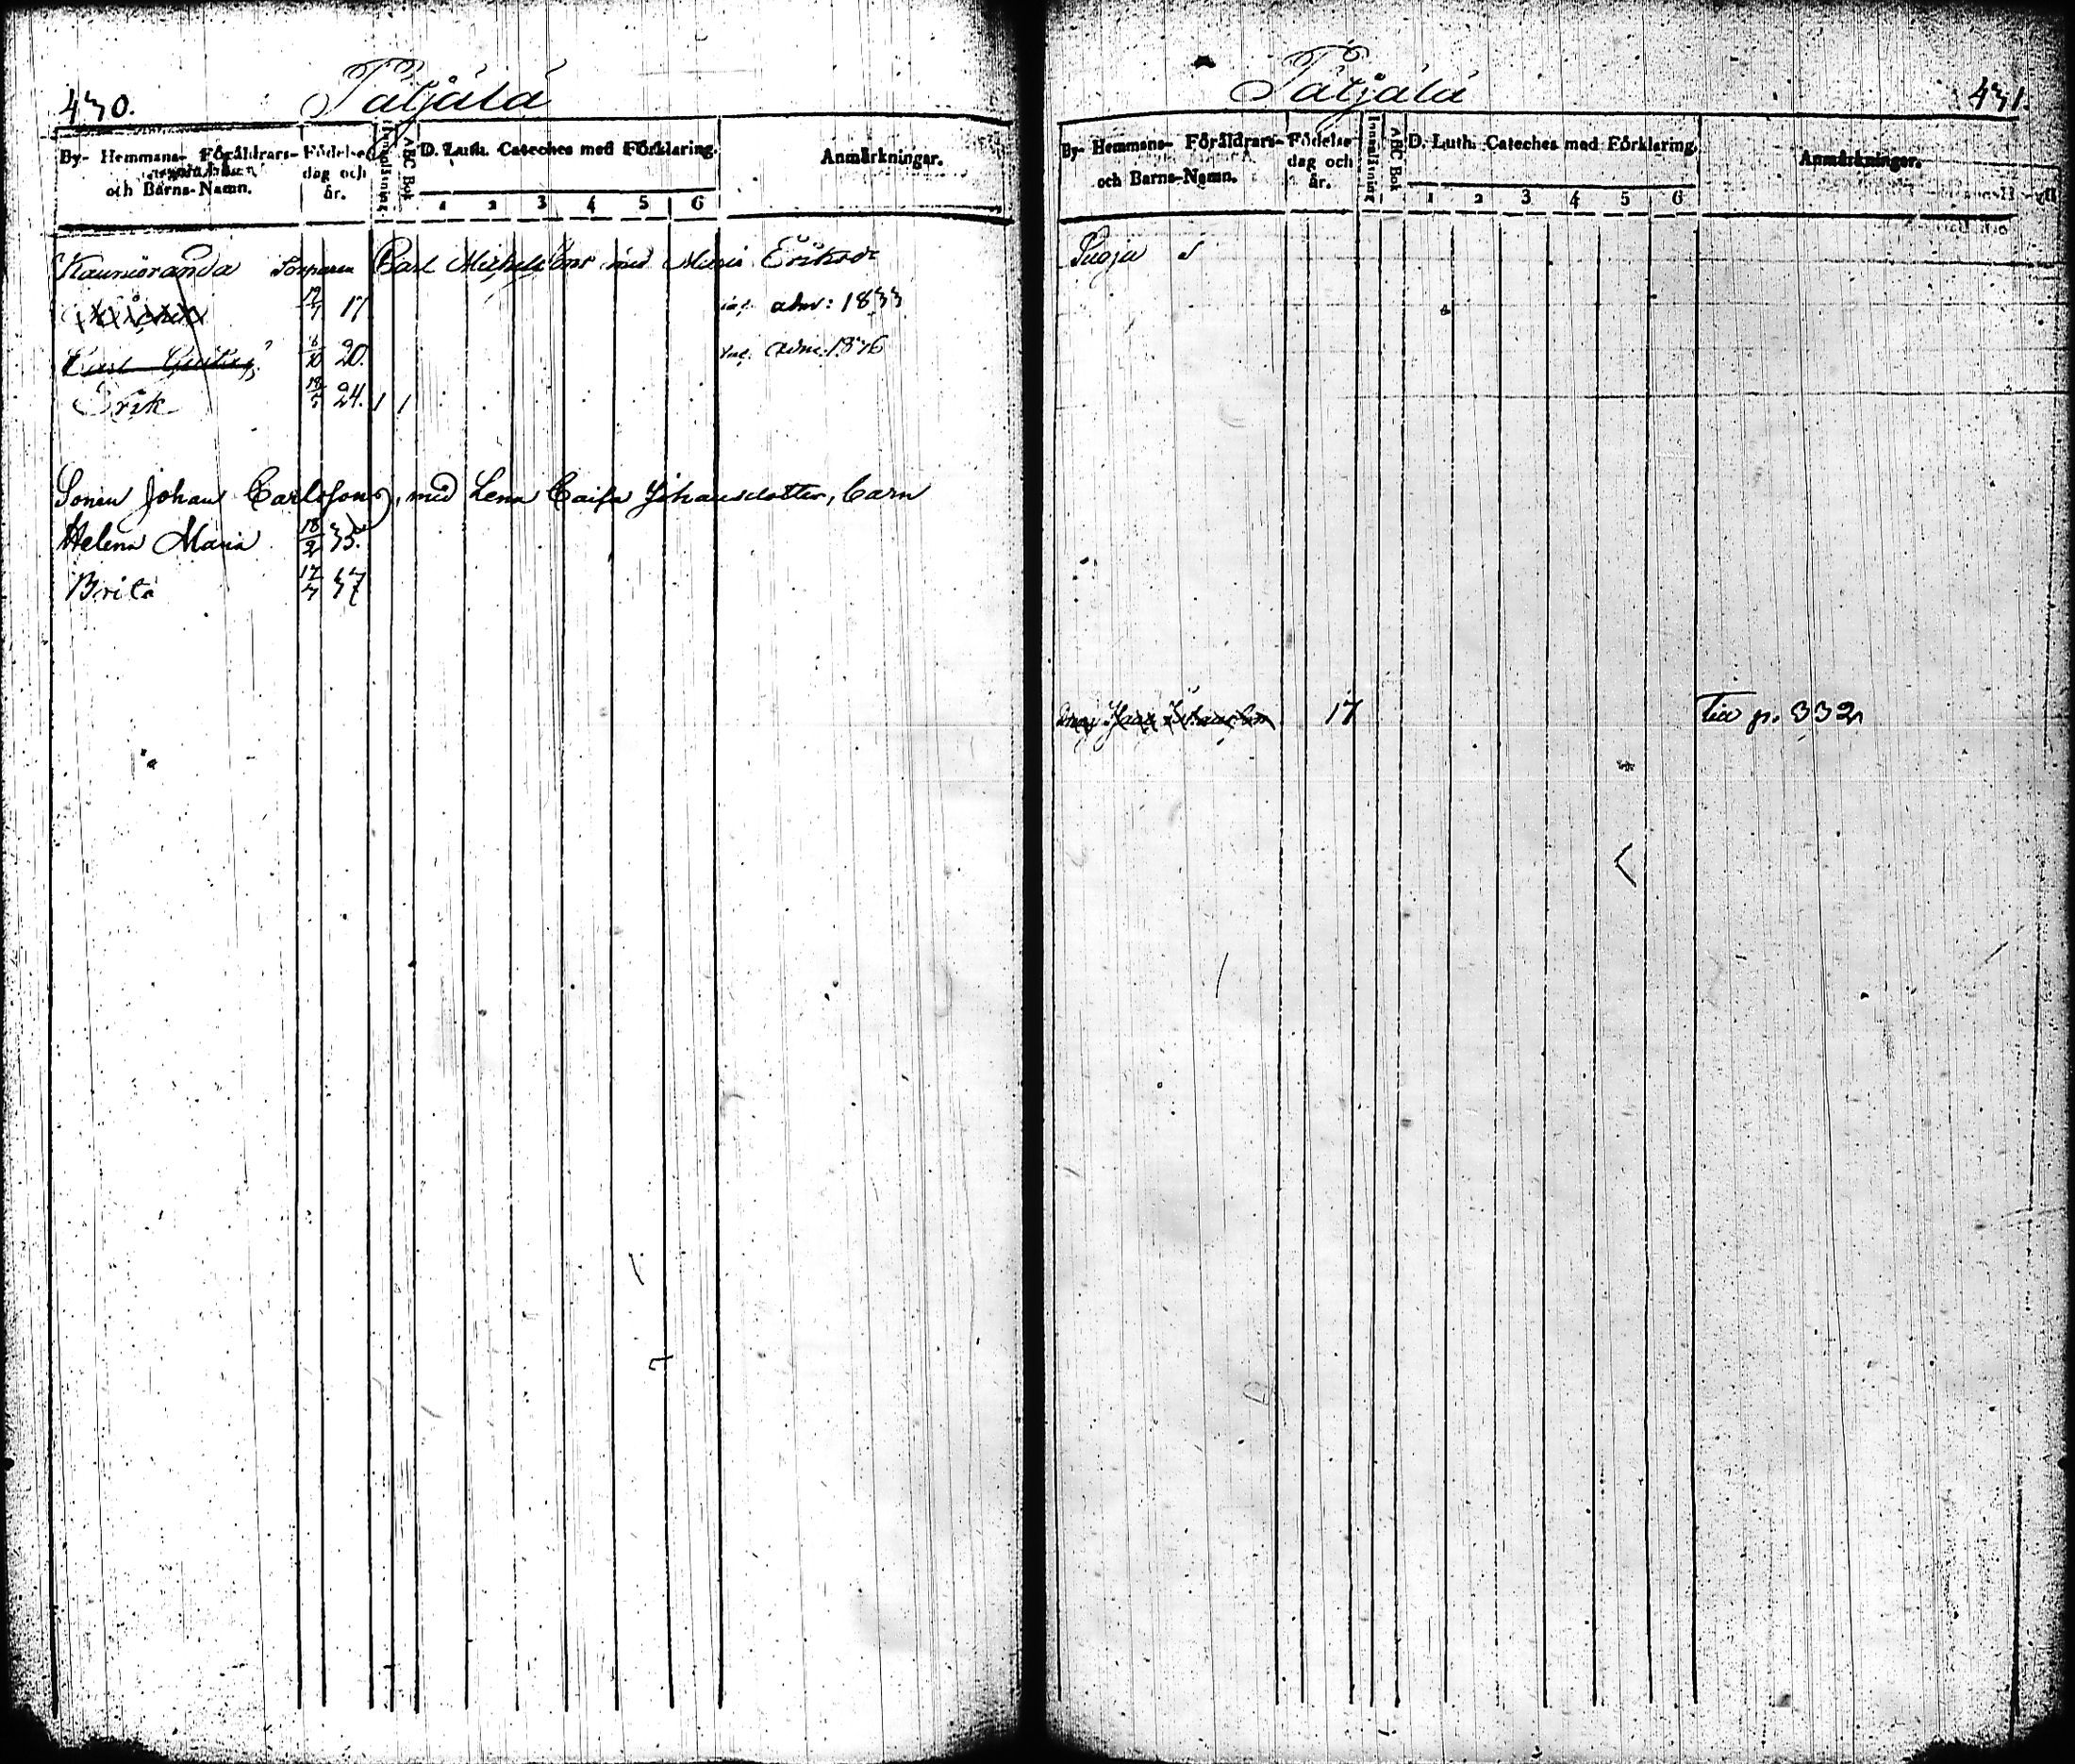 430. Påtjälä
By- Hemmans- Föräldrars- och Barns-Namn. Födelse dag och år. Innanläsning. ABC Bok D. Luth. Cateches med Förklaring. 1 2 3 4 5 6 Anmärkningar.
Kaunioranda Carl Michelsons med Maria Eriksdr
17 adm: 1833
Carl Gustaf 6/10 20. adm: 1836
Erik 24. 1 1
Sonen Johan Carlsson, med Lena Caisa Johansdotter, barn
Helena Maria 18/2 35.
Brita 37
Påtjälä 431.
By- Hemmans- Föräldrars- och Barns-Namn. Födelse dag och år. Innanläsning ABC Bok D. Luth. Cateches med Förklaring. 1 2 3 4 5 6 Anmärkningar.
17 p. 332